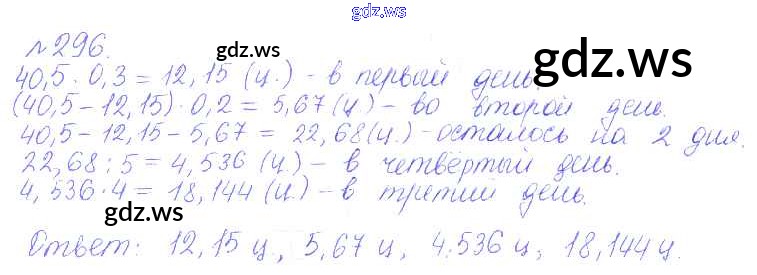 gdz.ws
№ 296.
gdz.ws
40,5 · 0,3 = 12,15 (ц.) - в первый день.
(40,5 - 12,15) · 0,2 = 5,67 (ц) - во второй день.
40,5 - 12,15 - 5,67 = 22,68 (ц.) - осталось на 2 дня.
22,68 : 5 = 4,536 (ц.) - в четвёртый день.
4,536 · 4 = 18,144 (ц.) - в третий день.
gdz.ws
gdz.ws
Ответ: 12,15 ц., 5,67 ц, 4.536 ц, 18,144 ц.
gdz.ws